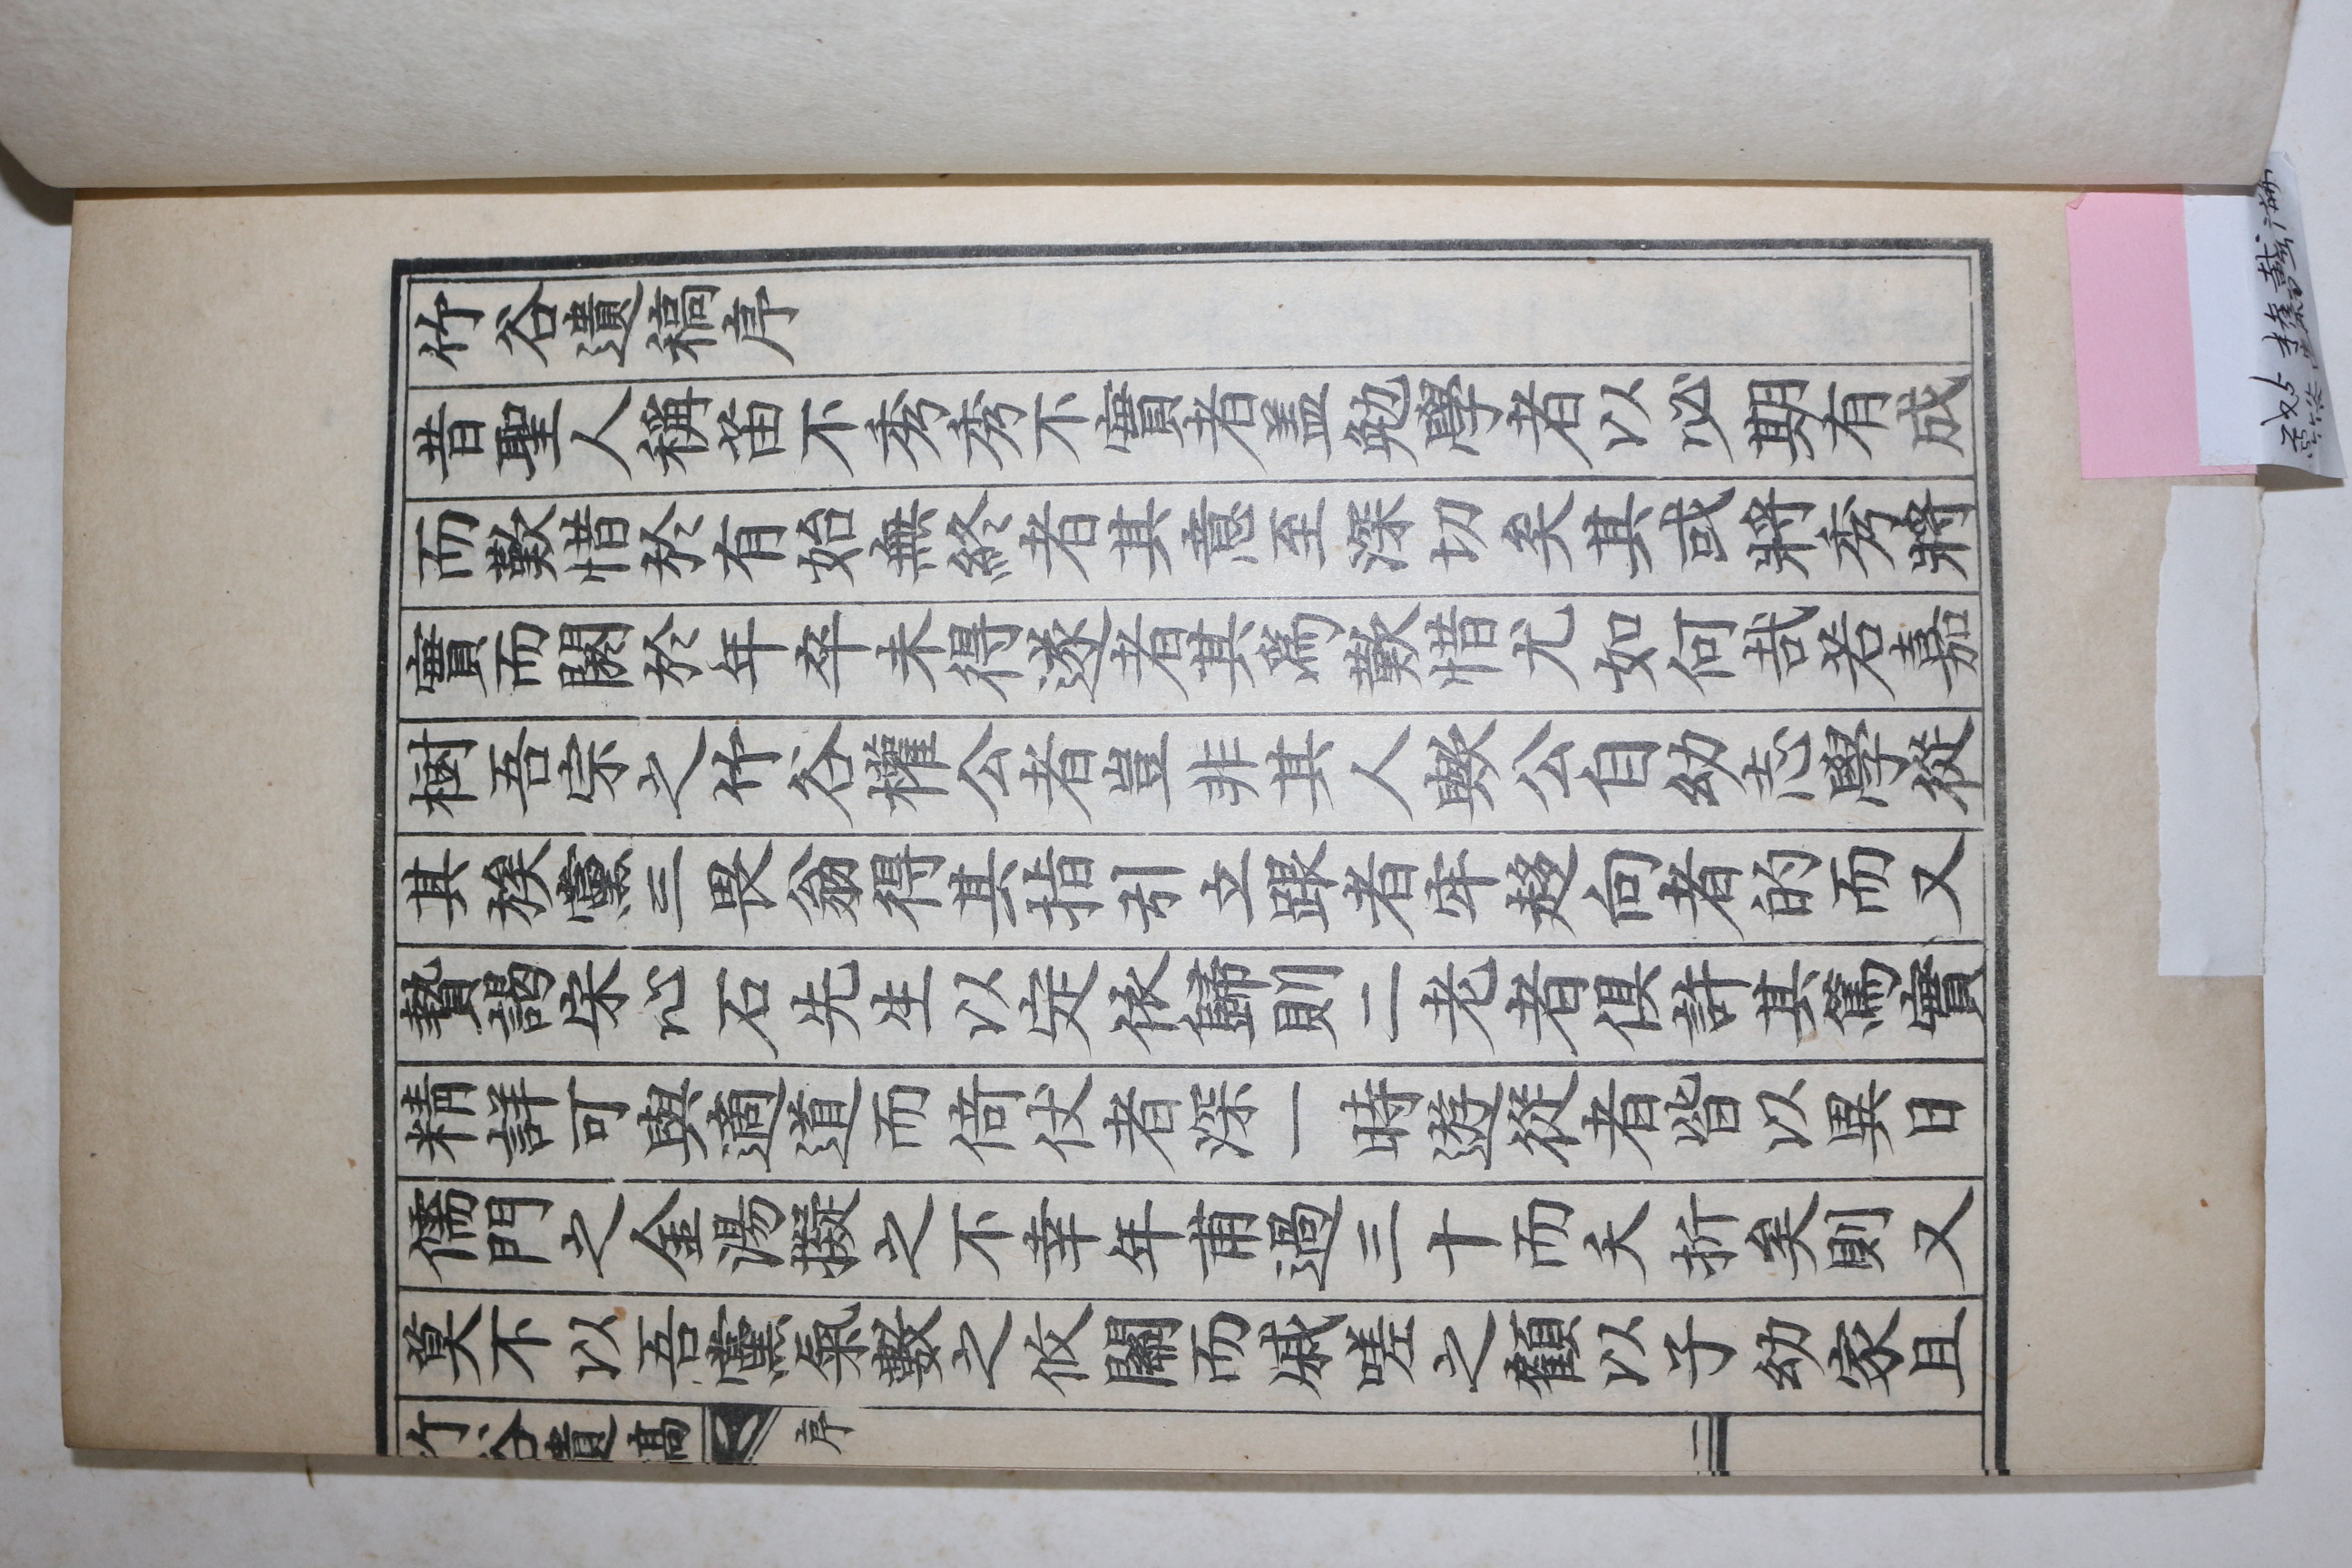 竹谷遺稿序
昔聖人稱苗不秀秀不實者盖勉學者以必期有成
而歎惜於有始無終者其意至深切矣其或將秀將
實而閼於年卒未得遂者其爲歎惜尤如何哉若嘉
樹吾宗之竹谷權公者豈非其人歟公自幼志學從
其族黨三畏翁得其指引立跟者牢趍向者的而又
贄謁宋心石先生以定依歸則二老者俱許其篤實
精詳可與適道而倚仗者深一時遊從者皆以異日
儒門之金湯擬之不幸年甫過三十而夭折矣則又
莫不以吾黨氣數之攸關而戚嗟之顧以子幼家且
竹谷遺稿
序
二